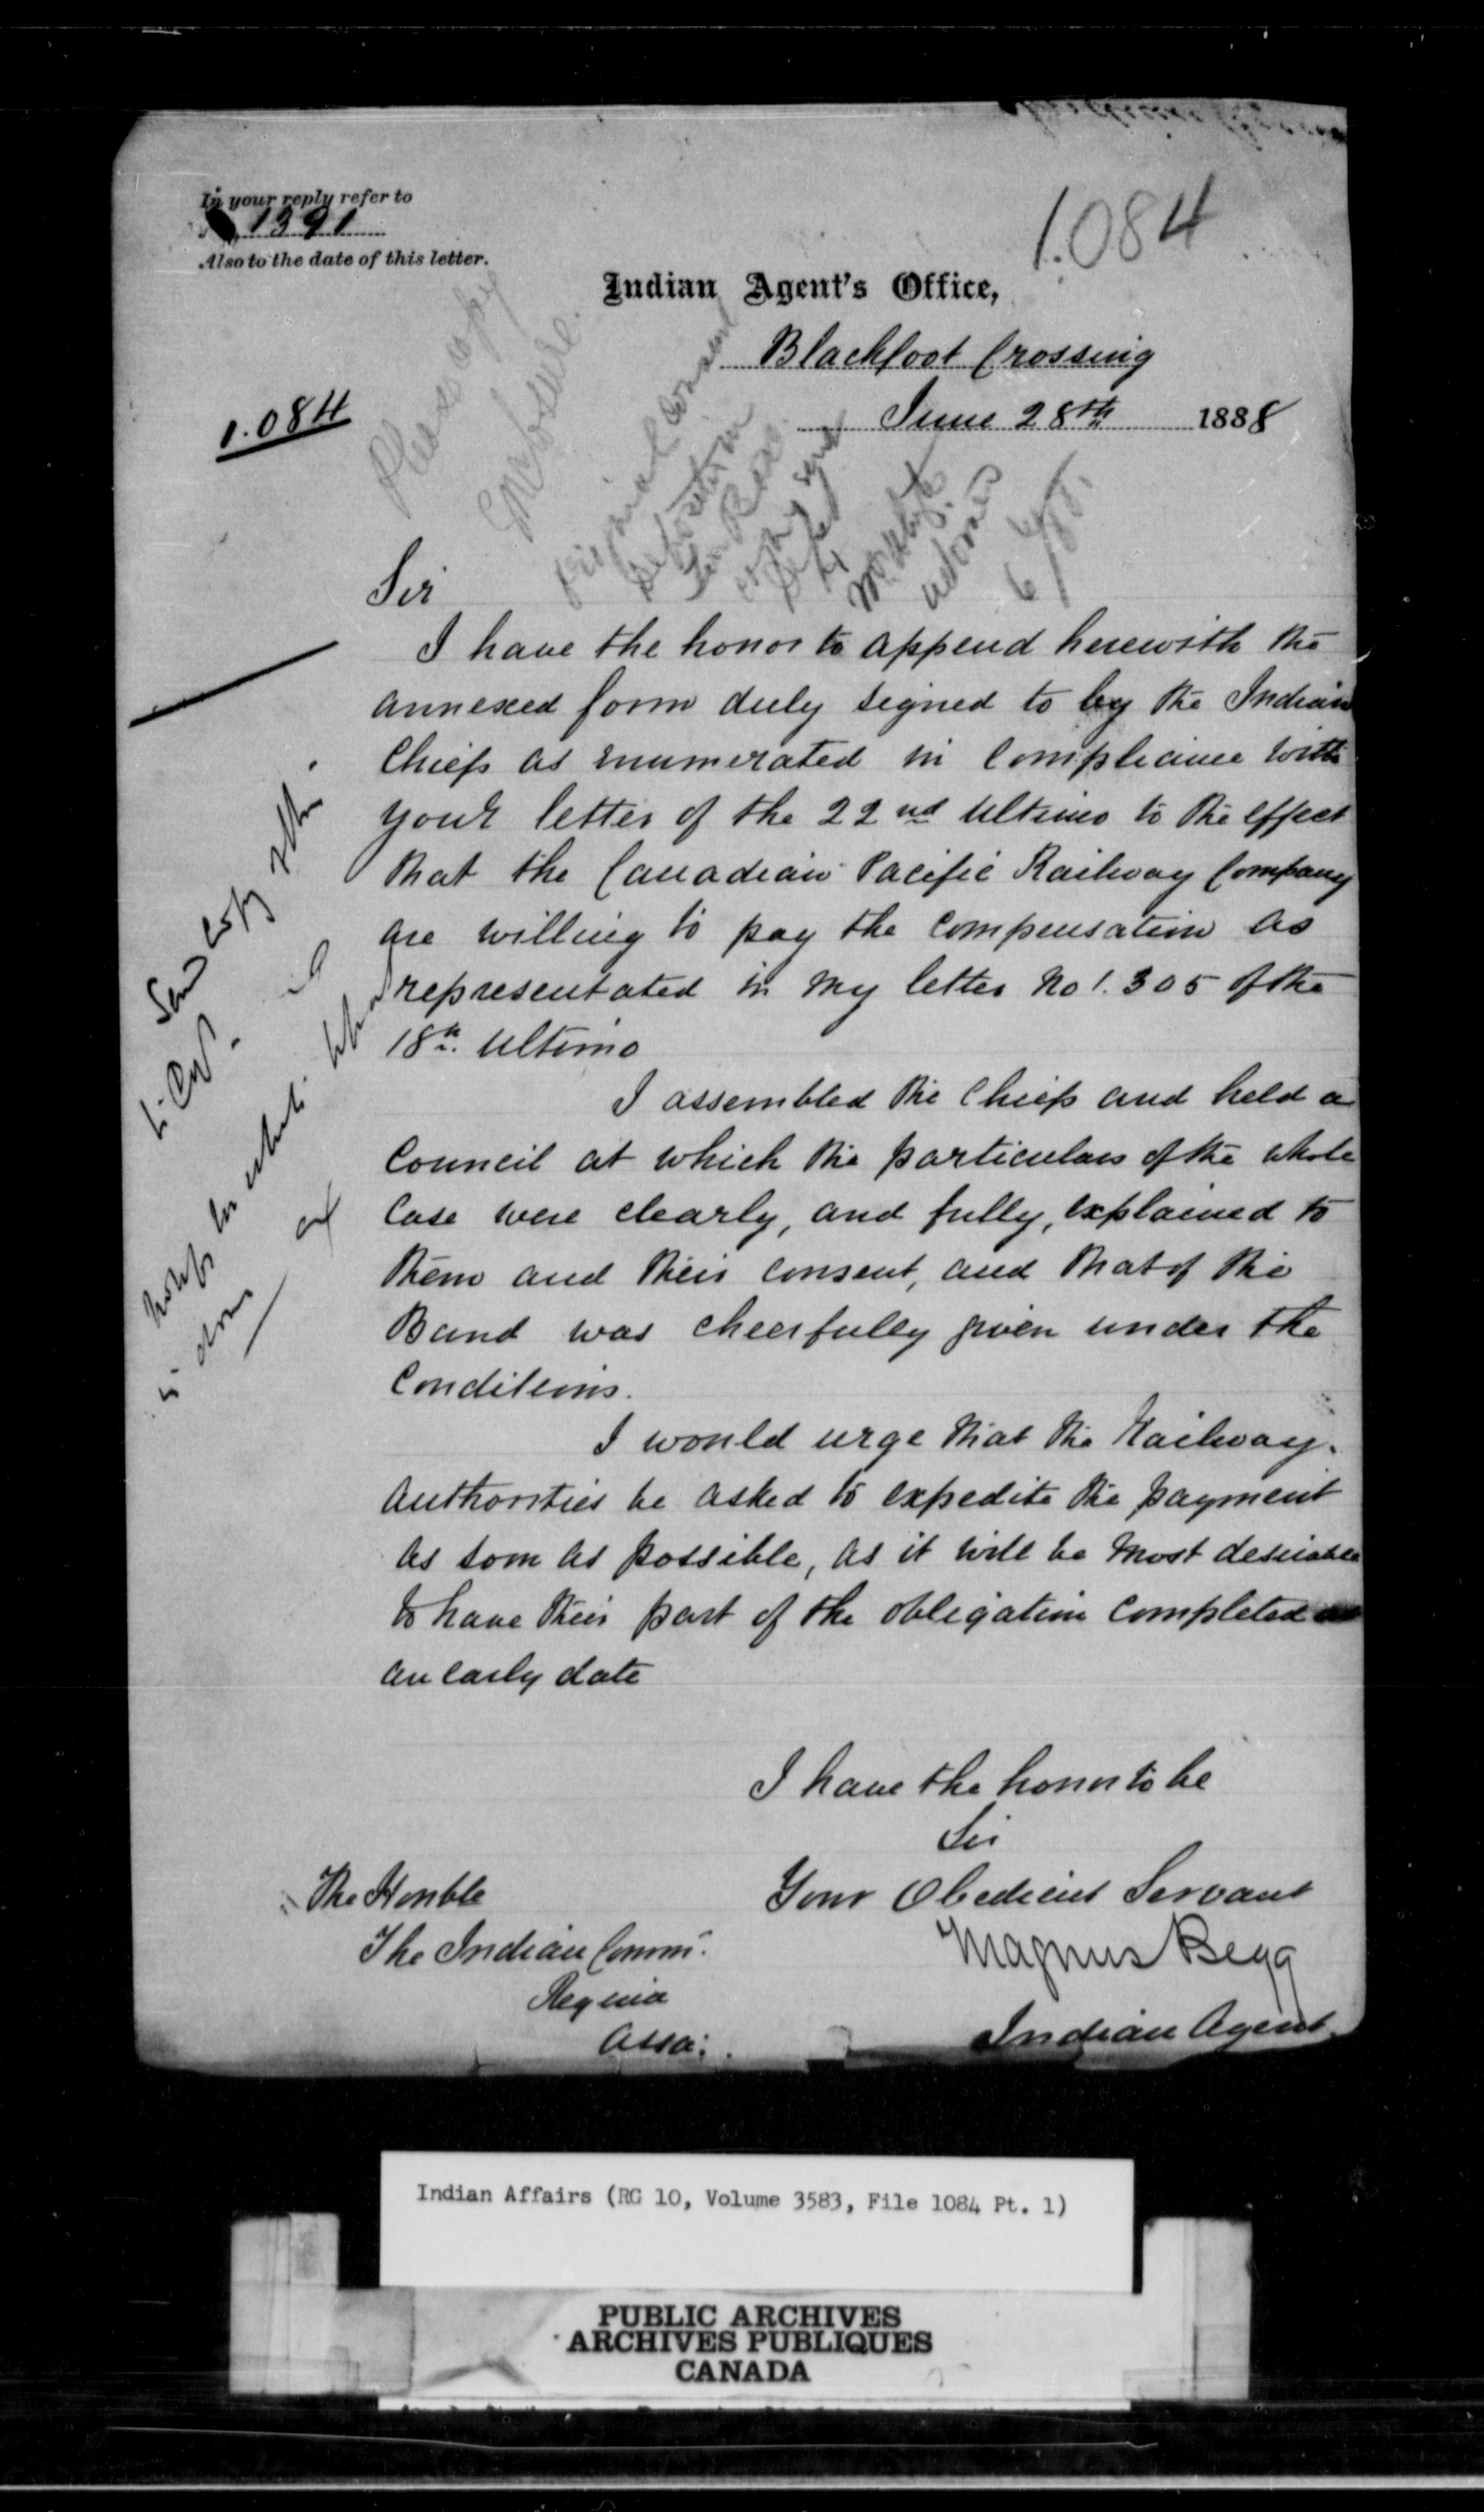 In your reply refer to
1391
Also to the date of this letter.
1.084
Indian Agent's Office,
Blackfoot Crossing
June 28th 1888
1.084
Please copy
Enclosure.
Sir
I have the honor to append herewith the
annexed form duly signed to by the Indian
Chiefs as enumerated in compliance with
your letter of the 22nd Ultimo to the effect
that the Canadian Pacific Railway Company
are willing to pay the compensation as
representated in my letter No 1.305 of the
18th. Ultimo
I assembled the Chiefs and held a
Council at which the particulars of the whole
Case were clearly, and fully, explained to
them and their consent, and that of the
Band was cheerfully given under the
Conditions.
I would urge that the Railway
Authorities be asked to expedite the payment
as soon as possible, as it will be most desirable
to have their part of the obligation completed at
an early date
I have the honor to be
Sir
Your Obedient Servant
Magnus Begg
Indian Agent.
The Honble
The Indian Commr.
Regina
Assa:
Indian Affairs (RG 10, Volume 3583, File 1084 Pt. 1)
PUBLIC ARCHIVES
ARCHIVES PUBLIQUES
CANADA